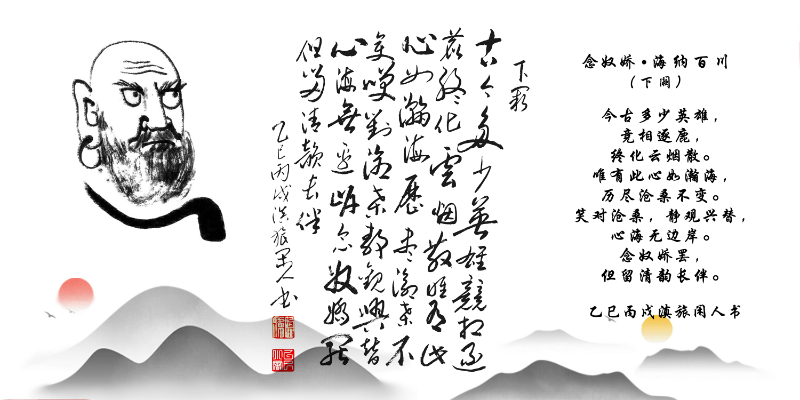 下阕
古今多少英雄競相逐
鹿終化雲烟散唯有此
心如瀚海歷盡滄桑不
變笑對滄桑靜觀興替
心海無邊岸念奴嬌罷
但留清韻長伴
乙巳丙戌滇旅闲人书
念奴娇·海纳百川
（下阕）
今古多少英雄，
竞相逐鹿，
终化云烟散。
唯有此心如瀚海，
历尽沧桑不变。
笑对沧桑，静观兴替，
心海无边岸。
念奴娇罢，
但留清韵长伴。
乙巳丙戌滇旅闲人书